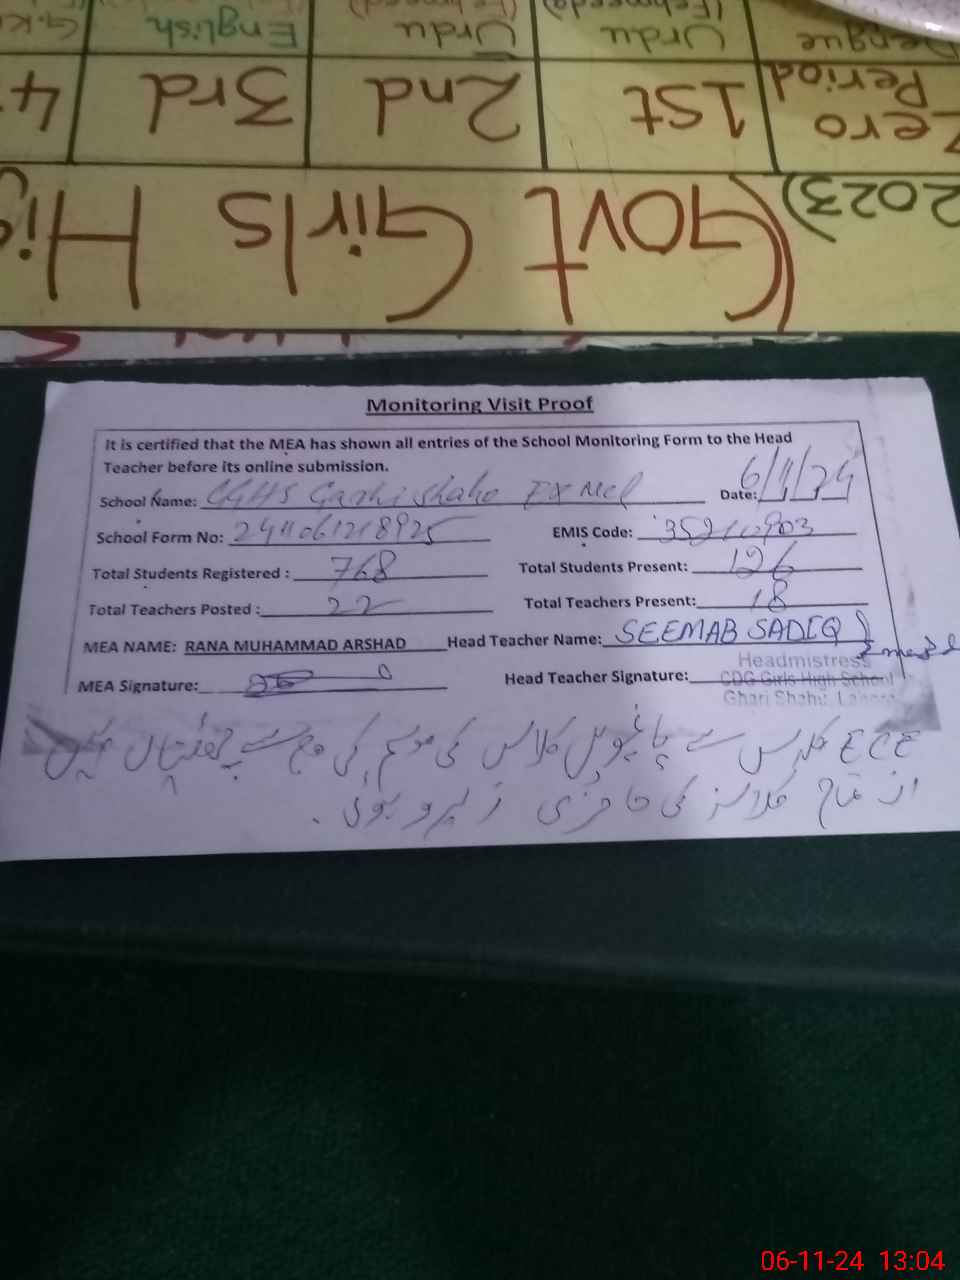 Dengue Urdu Urdu English G.K
Zero Period 1st 2nd 3rd 4
2023) Govt Girls Hi
Monitoring Visit Proof
It is certified that the MEA has shown all entries of the School Monitoring Form to the Head
Teacher before its online submission.
School Name: GGHS Garhi Shaho Ex Mcl Date: 6/11/24
School Form No: 2411061218925 EMIS Code: 35210903
Total Students Registered : 768 Total Students Present: 126
Total Teachers Posted : 22 Total Teachers Present: 18
MEA NAME: RANA MUHAMMAD ARSHAD Head Teacher Name: SEEMAB SADIQ
MEA Signature: Head Teacher Signature:
Headmistress
CDG Girls High School
Ghari Shahu, Lahore
ECE کلاس سے پانچویں کلاس کی موسم کی وجہ سے چھٹیاں ہیں
ان تمام کلاسز کی حاضری زیرو ہوئی۔
06-11-24 13:04